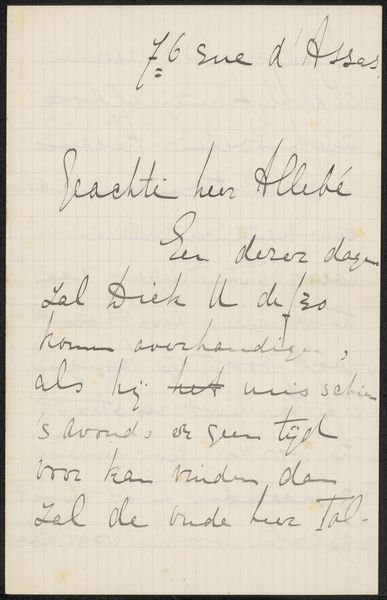 76 rue d'Assas
Geachte heer Allebé
Een dezer dagen
zal Dick U de f 30
komen overhandigen,
als hij het misschien
's avonds er geen tijd
voor kan vinden dan
zal de oude heer Tol-